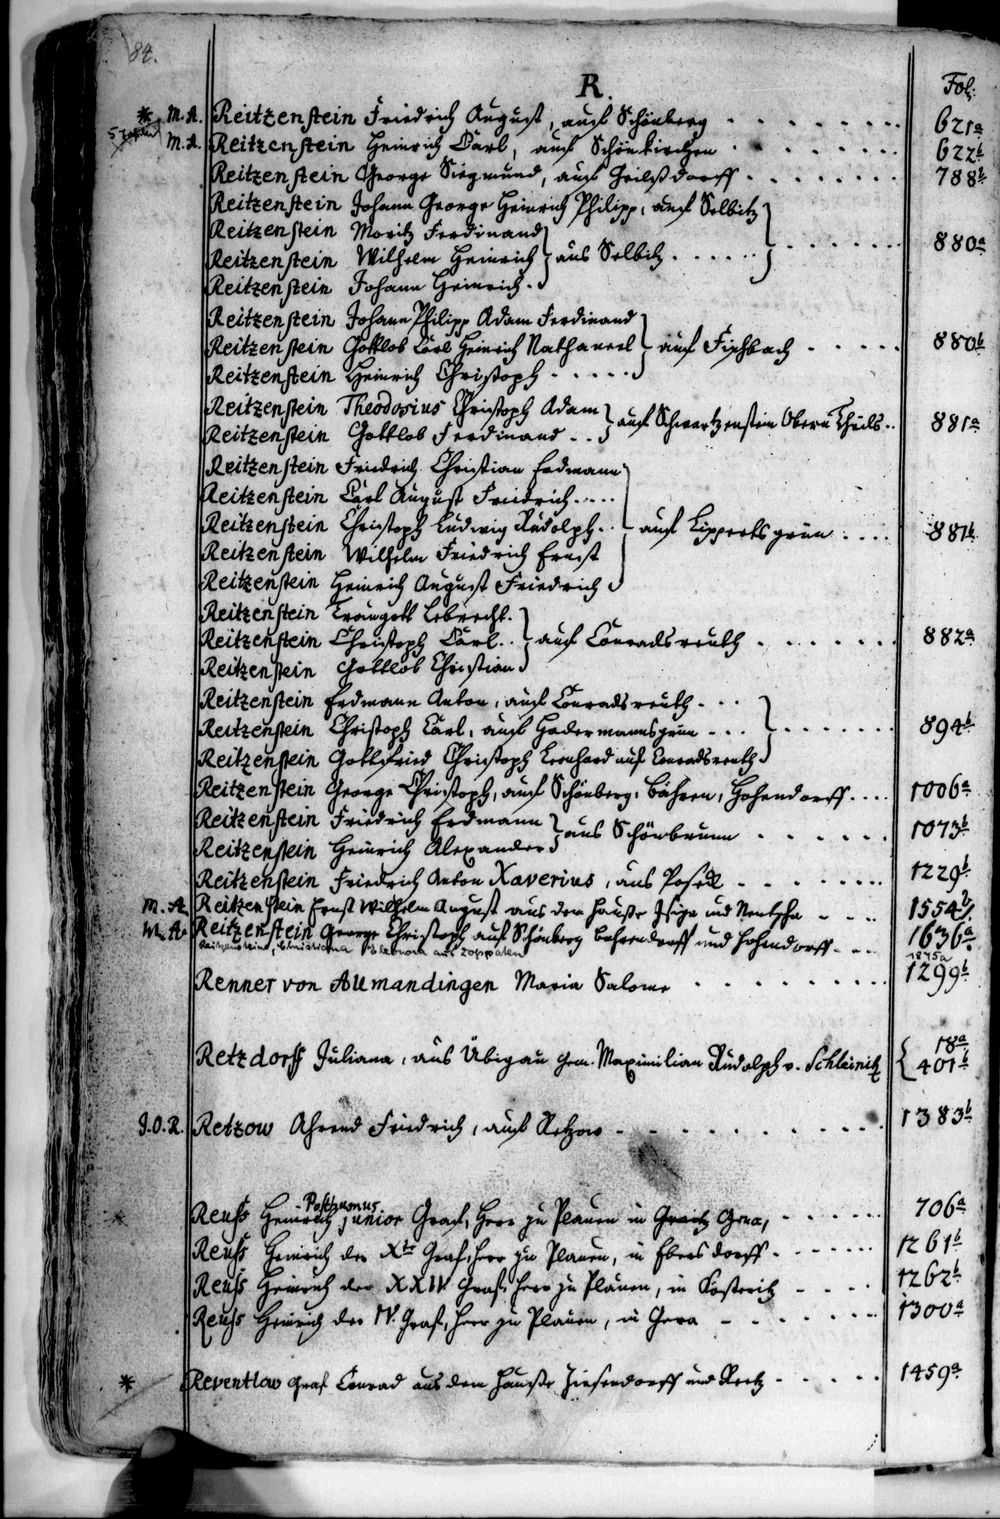 84.
R.
Fol:
* M. A. Reitzenstein Friedrich August, auf Schönberg 621a
M. A. Reitzenstein Heinrich Carl, auf Schönkirchen 622b
Reitzenstein George Siegmund, auf 788b
Reitzenstein Johann George Heinrich Philipp, auf Selbitz
Reitzenstein Moritz Ferdinand
Reitzenstein Wilhelm Heinrich aus Selbitz 880a
Reitzenstein Johann Heinrich
Reitzenstein Johann Philipp Adam Ferdinand
Reitzenstein Gottlob Carl Heinrich Nathaneel auf Fischbach 880b
Reitzenstein Heinrich Christoph
Reitzenstein Theodosius Christoph Adam
Reitzenstein Gottlob Ferdinand auf Schwartzenstein Obern Theils 881a
Reitzenstein Friedrich Christian Erdmann
Reitzenstein Carl August Friedrich
Reitzenstein Christoph Ludwig Rudolph auf Lippertsgrün 881b
Reitzenstein Wilhelm Friedrich Ernst
Reitzenstein Heinrich August Friedrich
Reitzenstein Traugott Lebrecht
Reitzenstein Christoph Carl auf Conradsreuth 882a
Reitzenstein Gottlob Christian
Reitzenstein Erdmann Anton, auf Conradsreuth
Reitzenstein Christoph Carl, auf Hadermannsgrün 894b
Reitzenstein Gottfried Christoph Leonhard auf Conradsreuth
Reitzenstein George Christoph, auf Schönberg, Bähren, Hohendorff 1006a
Reitzenstein Friedrich Erdmann
Reitzenstein Heinrich Alexander aus Schönbrunn 1073b
Reitzenstein Friedrich Anton Xaverius, aus Poseck 1229b
M. A. Reitzenstein Ernst Wilhelm August aus dem Hauße Isiga und Nentschau 1554b
M. A. Reitzenstein George Christoph auf Schönberg Bahrendorff und Hohendorff 1636a
Reitzenstein, Christiana Eleonora aus Zoppaten 1875a
Renner von Allmandingen Maria Salome 1299b
Retzdorff Juliana, aus Übigau Gem. Maximilian Rudolph v. Schleinitz 18a 401b
J.O.R. Retzow Ahrend Friedrich, auf Retzow 1383b
Posthumus
Reuß Heinrich junior Graf, Herr zu Plauen in Graitz Gera, 706a
Reuß Heinrich der Xte Graf, Herr zu Plauen, in Ebersdorff 1261b
Reuß Heinrich der XXIV. Graf, Herr zu Plauen, in Köstritz 1262b
Reuß Heinrich der IV. Graf, Herr zu Plauen, in Gera 1300a
* Reventlow Graf Conrad aus dem Hauße Ziesendorff und Reetz 1459a